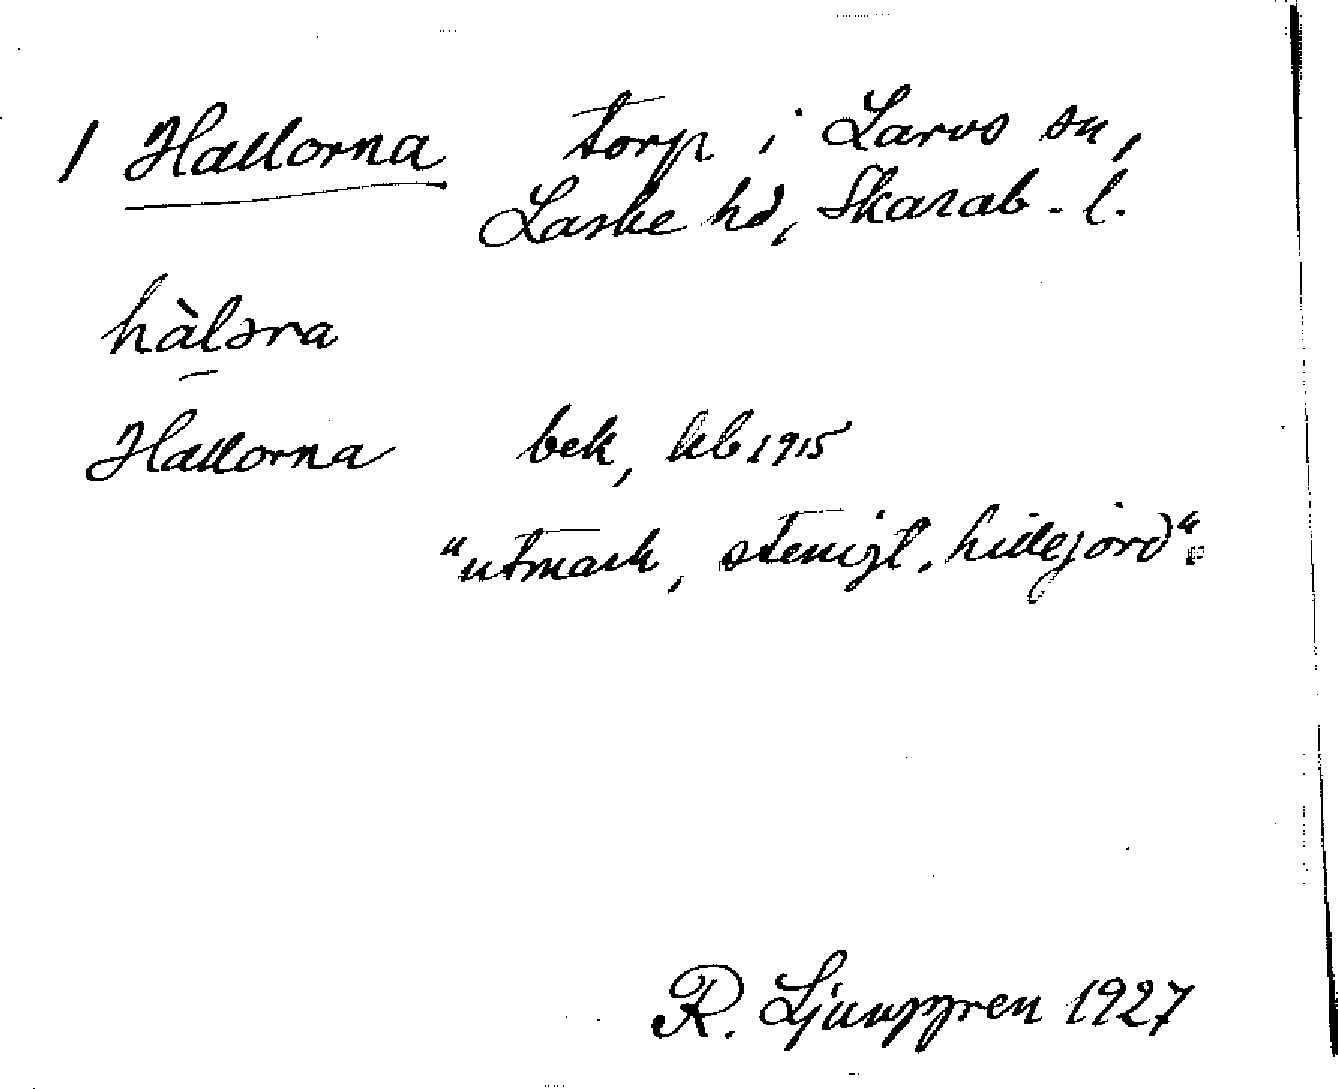 1 Hallorna torp i Larvs sn,
Laske hd, Skarab. l.
hàləra
Hallorna bek, kb 1915
"utmark, stenigt, hällejord".
R. Ljunggren 1927